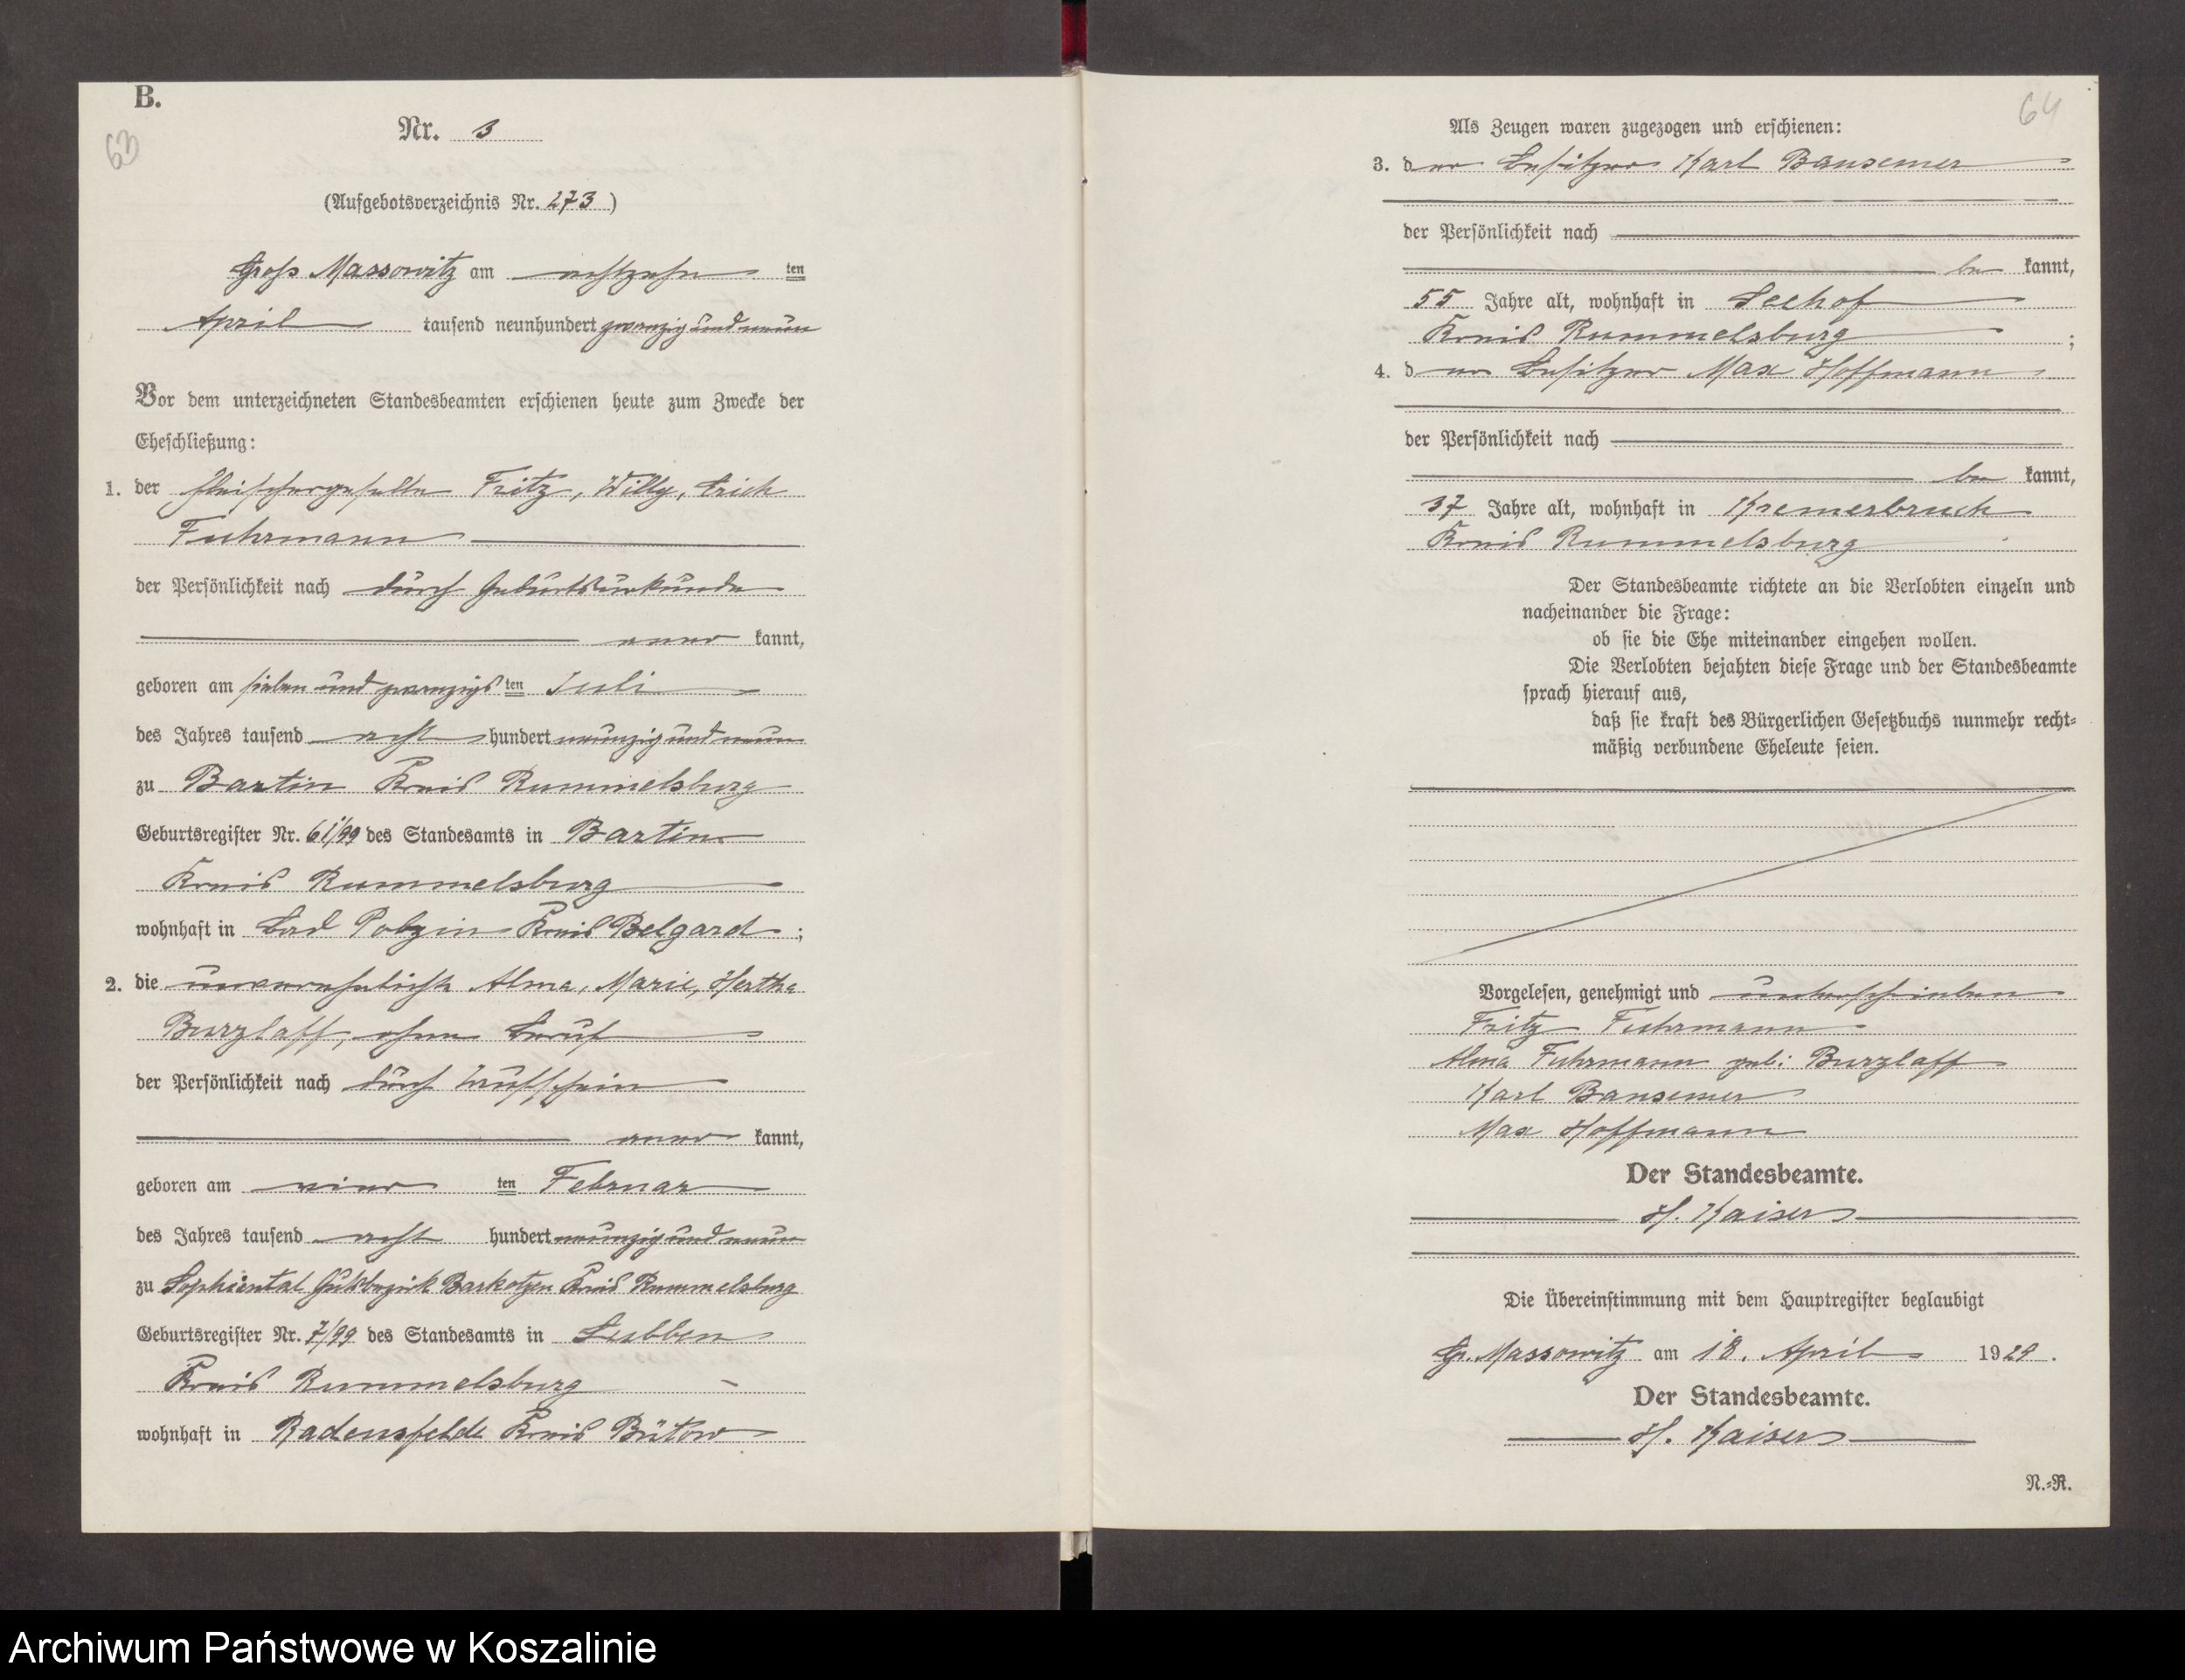 B.
63
Nr. 3
(Aufgebotsverzeichnis Nr. 273)
Groß Massowitz am achtzehn ten
April tausend neunhundert zwanzig und neun
Vor dem unterzeichneten Standesbeamten erschienen heute zum Zwecke der
Eheschließung:
1. der Fleischergeselle Fritz, Willy, Erich
Fuhrmann
der Persönlichkeit nach durch Geburtsurkunde
aner kannt,
geboren am sieben und zwanzigs ten Juli
des Jahres tausend acht hundert neunzig und neun
zu Bartin Kreis Rummelsburg
Geburtsregister Nr. 61/99 des Standesamts in Bartin
Kreis Rummelsburg
wohnhaft in Bad Polzin Kreis Belgard;
2. die unverehelichte Alma, Marie, Hertha
Burzlaff, ohne Beruf
der Persönlichkeit nach durch Taufschein
aner kannt,
geboren am vier ten Februar
des Jahres tausend acht hundert neunzig und neun
zu Sophiental Gutsbezirk Barkotzen Kreis Rummelsburg
Geburtsregister Nr. 7/99 des Standesamts in Lubben
Kreis Rummelsburg
wohnhaft in Radensfelde Kreis Bütow
64
Als Zeugen waren zugezogen und erschienen:
3. der Besitzer Karl Bansemer
der Persönlichkeit nach
be kannt,
55 Jahre alt, wohnhaft in Seehof
Kreis Rummelsburg;
4. der Besitzer Max Hoffmann
der Persönlichkeit nach
be kannt,
37 Jahre alt, wohnhaft in Kremerbruch
Kreis Rummelsburg
Der Standesbeamte richtete an die Verlobten einzeln und
nacheinander die Frage:
ob sie die Ehe miteinander eingehen wollen.
Die Verlobten bejahten diese Frage und der Standesbeamte
sprach hierauf aus,
daß sie kraft des Bürgerlichen Gesetzbuchs nunmehr recht-
mäßig verbundene Eheleute seien.
Vorgelesen, genehmigt und unterschrieben
Fritz Fuhrmann
Alma Fuhrmann geb: Burzlaff
Karl Bansemer
Max Hoffmann
Der Standesbeamte.
H. Kaiser
Die Übereinstimmung mit dem Hauptregister beglaubigt
Gr. Massowitz am 18. April 1929.
Der Standesbeamte.
H. Kaiser
N.-R.
Archiwum Państwowe w Koszalinie